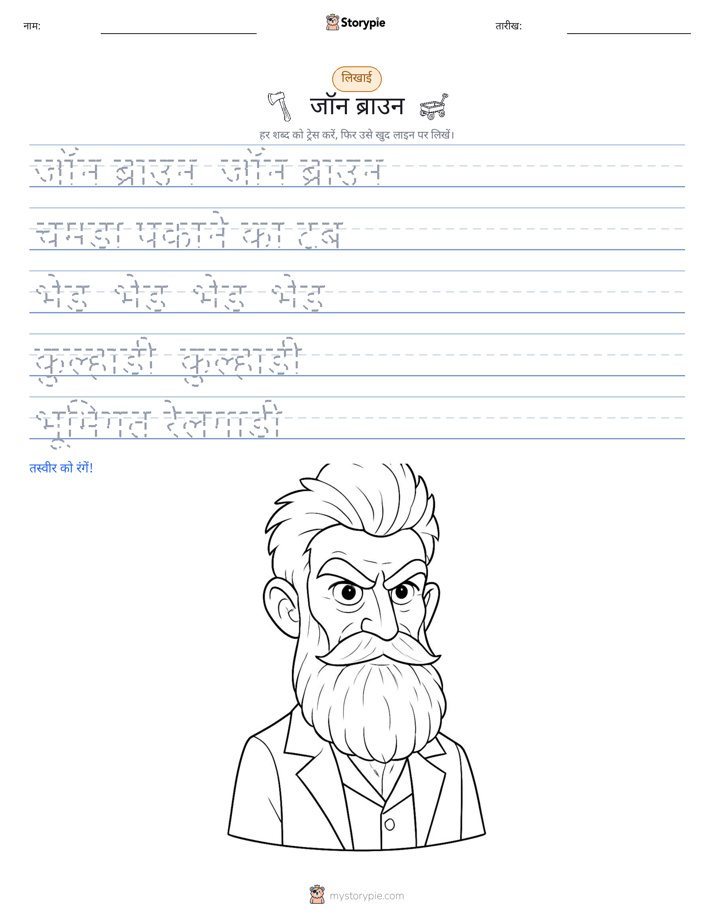 नाम:
Storypie
तारीख:
लिखाई
जॉन ब्राउन
हर शब्द को ट्रेस करें, फिर उसे खुद लाइन पर लिखें।
जॉन ब्राउन जॉन ब्राउन
चमड़ा पकाने का टब
भेड़ भेड़ भेड़ भेड़
कुल्हाड़ी कुल्हाड़ी
भूमिगत रेलगाड़ी
तस्वीर को रंगें!
mystorypie.com